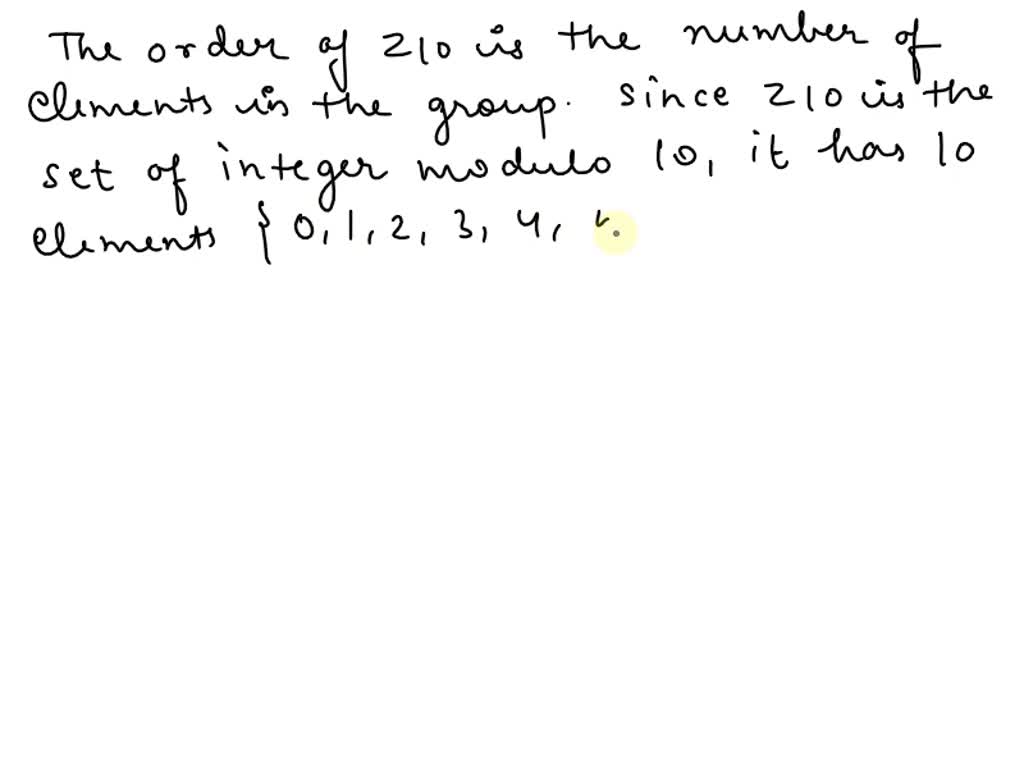 The order of Z10 is the number of
elements in the group. Since Z10 is the
set of integer modulo 10, it has 10
elements { 0, 1, 2, 3, 4,